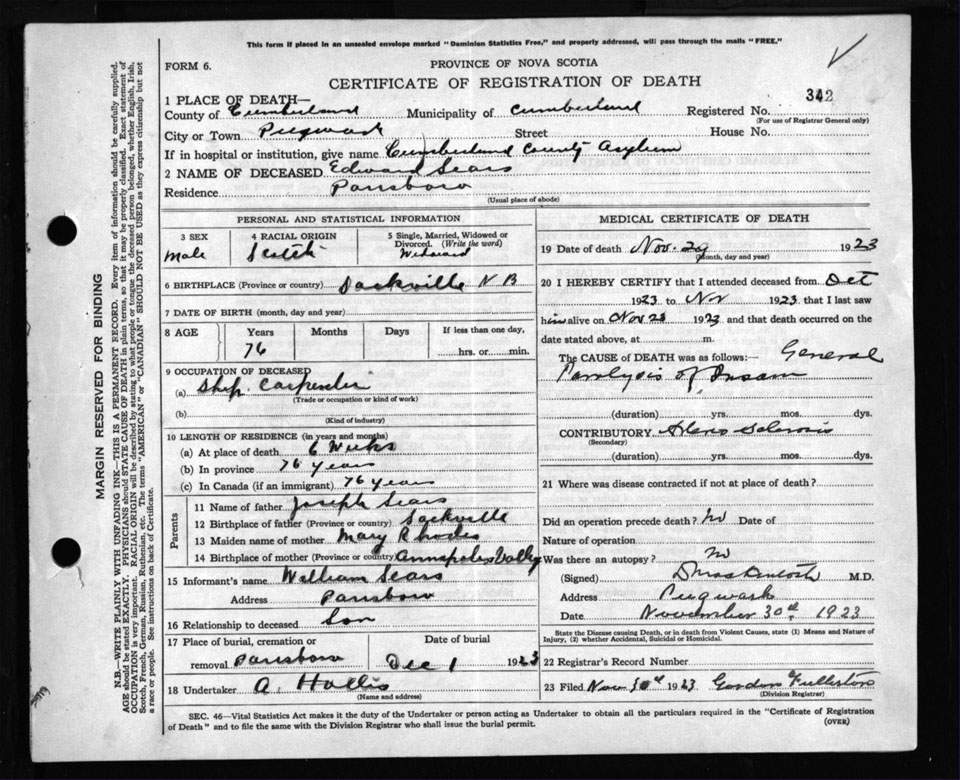 This form if placed in an unsealed envelope marked "Dominion Statistics Free," and properly addressed, will pass through the mails "FREE."
FORM 6.
PROVINCE OF NOVA SCOTIA
CERTIFICATE OF REGISTRATION OF DEATH
342
1 PLACE OF DEATH—
County of Cumberland Municipality of Cumberland Registered No.
(For use of Registrar General only)
City or Town Pugwash Street House No.
If in hospital or institution, give name Cumberland County Asylum
2 NAME OF DECEASED Edward Sears
Residence Parrsboro
(Usual place of abode)
PERSONAL AND STATISTICAL INFORMATION
3 SEX 4 RACIAL ORIGIN 5 Single, Married, Widowed or Divorced. (Write the word)
Male Scotch Widowed
6 BIRTHPLACE (Province or country) Sackville N B
7 DATE OF BIRTH (month, day and year)
8 AGE Years Months Days If less than one day,
76 hrs. or min.
9 OCCUPATION OF DECEASED
(a) Ship Carpenter
(Trade or occupation or kind of work)
(b)
(Kind of industry)
10 LENGTH OF RESIDENCE (in years and months)
(a) At place of death 6 Weeks
(b) In province 76 years
(c) In Canada (if an immigrant) 76 years
Parents
11 Name of father Joseph Sears
12 Birthplace of father (Province or country) Sackville
13 Maiden name of mother Mary Rhodes
14 Birthplace of mother (Province or country) Annapolis Valley
15 Informant's name William Sears
Address Parrsboro
16 Relationship to deceased Son
17 Place of burial, cremation or Date of burial
removal Parrsboro Dec 1 1923
18 Undertaker A. Hollis
(Name and address)
MEDICAL CERTIFICATE OF DEATH
19 Date of death Nov. 29 1923
(Month, day and year)
20 I HEREBY CERTIFY that I attended deceased from Oct
1923 to Nov 1923 that I last saw
him alive on Nov 28 1923 and that death occurred on the
date stated above, at m.
The CAUSE OF DEATH was as follows:— General
Paralysis of Insane
(duration) yrs. mos. dys.
CONTRIBUTORY Sclerosis
(Secondary)
(duration) yrs. mos. dys.
21 Where was disease contracted if not at place of death?
Did an operation precede death? No Date of
Nature of operation
Was there an autopsy? No
(Signed) M.D.
Address Pugwash
Date November 30th, 1923
State the Disease causing Death, or in death from Violent Causes, state (1) Means and Nature of
Injury, (2) whether Accidental, Suicidal or Homicidal.
22 Registrar's Record Number
23 Filed Nov 30th 1923 Gordon Fullerton
(Division Registrar)
SEC. 46—Vital Statistics Act makes it the duty of the Undertaker or person acting as Undertaker to obtain all the particulars required in the "Certificate of Registration
of Death" and to file the same with the Division Registrar who shall issue the burial permit.
(OVER)
MARGIN RESERVED FOR BINDING
N.B.—WRITE PLAINLY WITH UNFADING INK—THIS IS A PERMANENT RECORD. Every item of information should be carefully supplied.
AGE should be stated EXACTLY. PHYSICIANS should STATE CAUSE OF DEATH in plain terms, so that it may be properly classified. Exact statement of
OCCUPATION is very important. RACIAL ORIGIN will be described by stating to what people or tongue the deceased person belonged, whether English, Irish,
Scotch, French, German, Russian, Ruthenian, etc. The terms "AMERICAN" or "CANADIAN" SHOULD NOT BE USED as they express citizenship but not
a race or people. See instructions on back of Certificate.